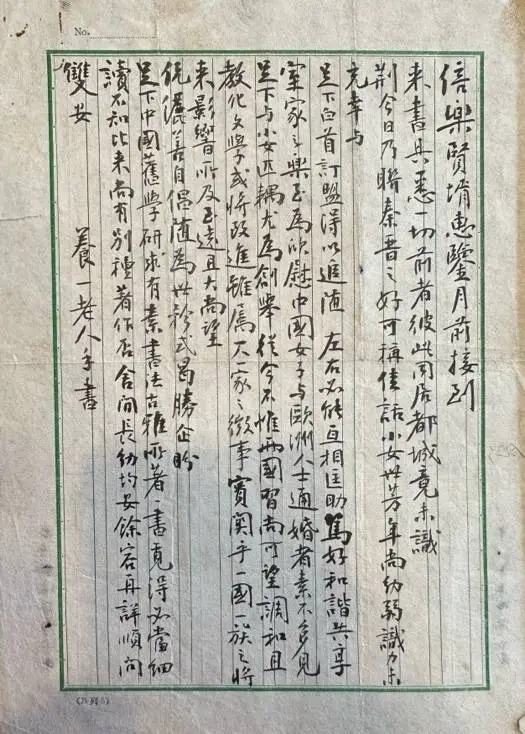 No.
倍樂賢壻惠鑒月前接到
来書具悉一切前者彼此同居都城竟未識
荆今日乃聯秦晋之好可稱佳話小女世芳年尚幼弱識力未
充幸与
足下白首訂盟得以追随左右必能互相匡助篤好和諧共享
室家之樂至為欣慰中國女子与歐洲人士通婚者素不多見
足下与小女匹耦尤為創舉從今不惟兩國習尚可望調和且
教化文學或將改進雖屬大家之微事實關乎一國一族之將
来影響所及至遠且大尚望
伉儷善自倡随為世矜式曷勝企盼
足下中國舊學研求有素書法古雅所著一書克得必當細
讀不知比来尚有別種著作否舍間長幼均安餘容再詳順問
雙安
養一老人手書